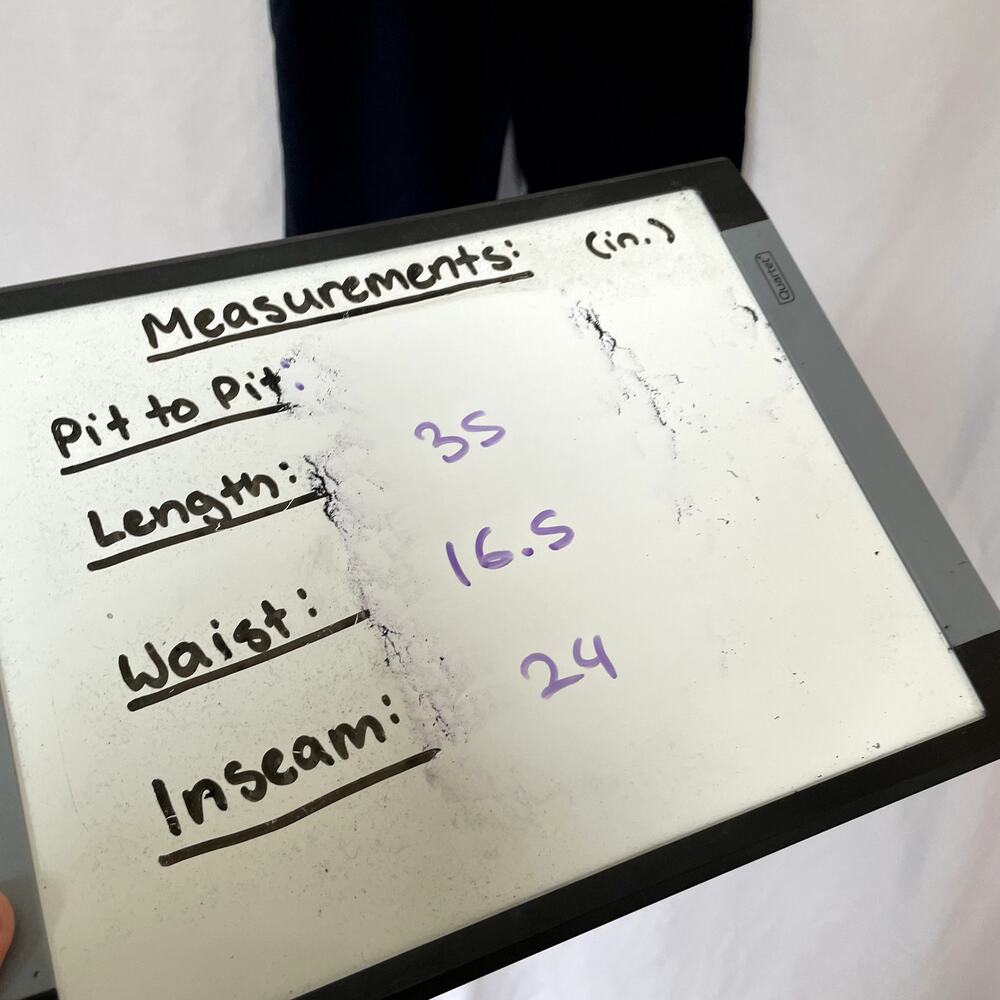 Measurements: (in.)
Pit to Pit:
Length: 35
Waist: 16.5
Inseam: 24
Quartet